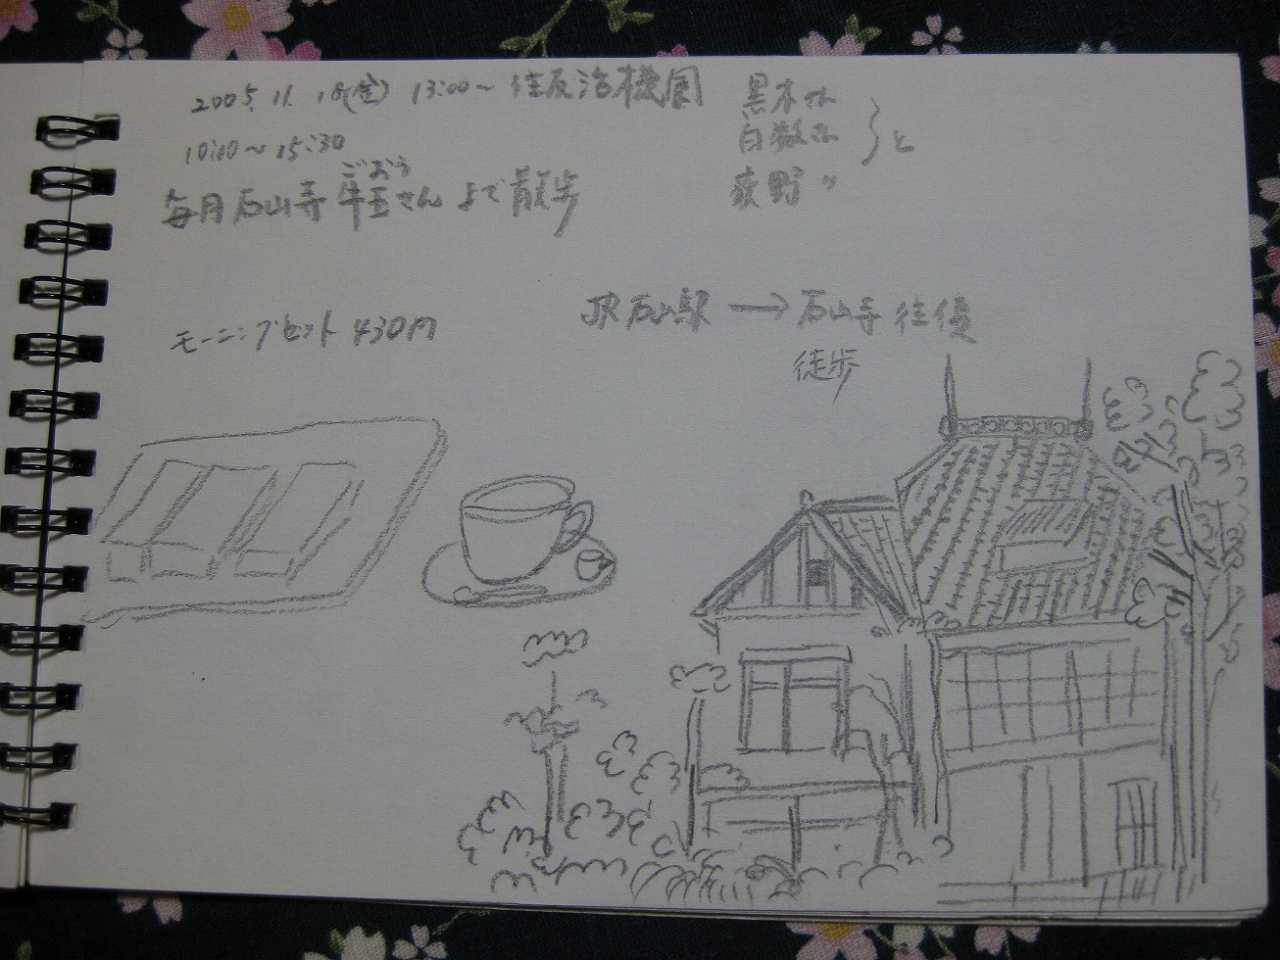 2005.11.18(金) 13:00～住友活機園
10:00～15:30
ごおう
毎月石山寺牛玉さんまで散歩
黒木さん
白数さん
荻野〃
と
JR石山駅→石山寺往復
徒歩
モーニングセット430円